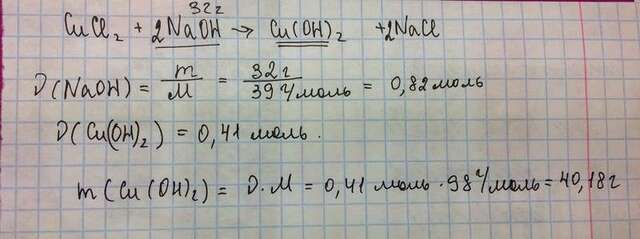 32г
CuCl₂ + 2NaOH → Cu(OH)₂ + 2NaCl
ν(NaOH) = m/M = 32 г/39 г/моль = 0,82 моль
ν(Cu(OH)₂) = 0,41 моль.
m(Cu(OH)₂) = ν·M = 0,41 моль · 98 г/моль = 40,18 г